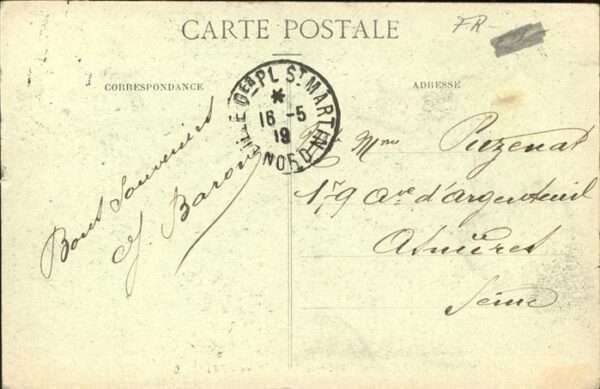 FR-
CARTE POSTALE
CORRESPONDANCE
ADRESSE
LILLE Gᵈᵉ PL Sᵗ MARTIN
*
16 -5
19
NORD
Bons Souvenirs
J. Baron
Mme Puzenat
179 Ave d'Argenteuil
Asnières
Seine